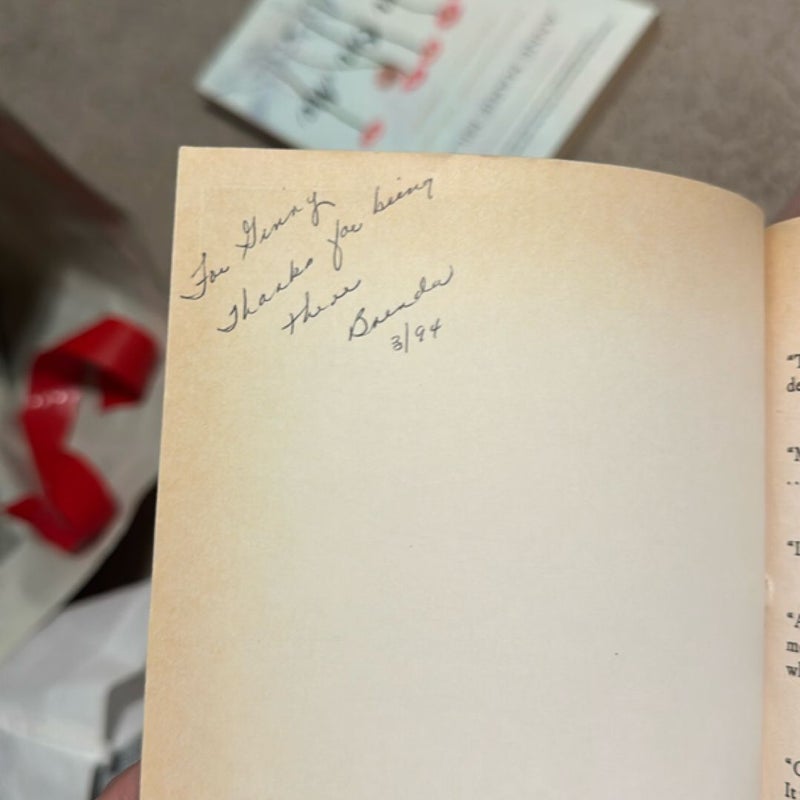 For Ginny
Thanks for being
there
Brenda
3/94